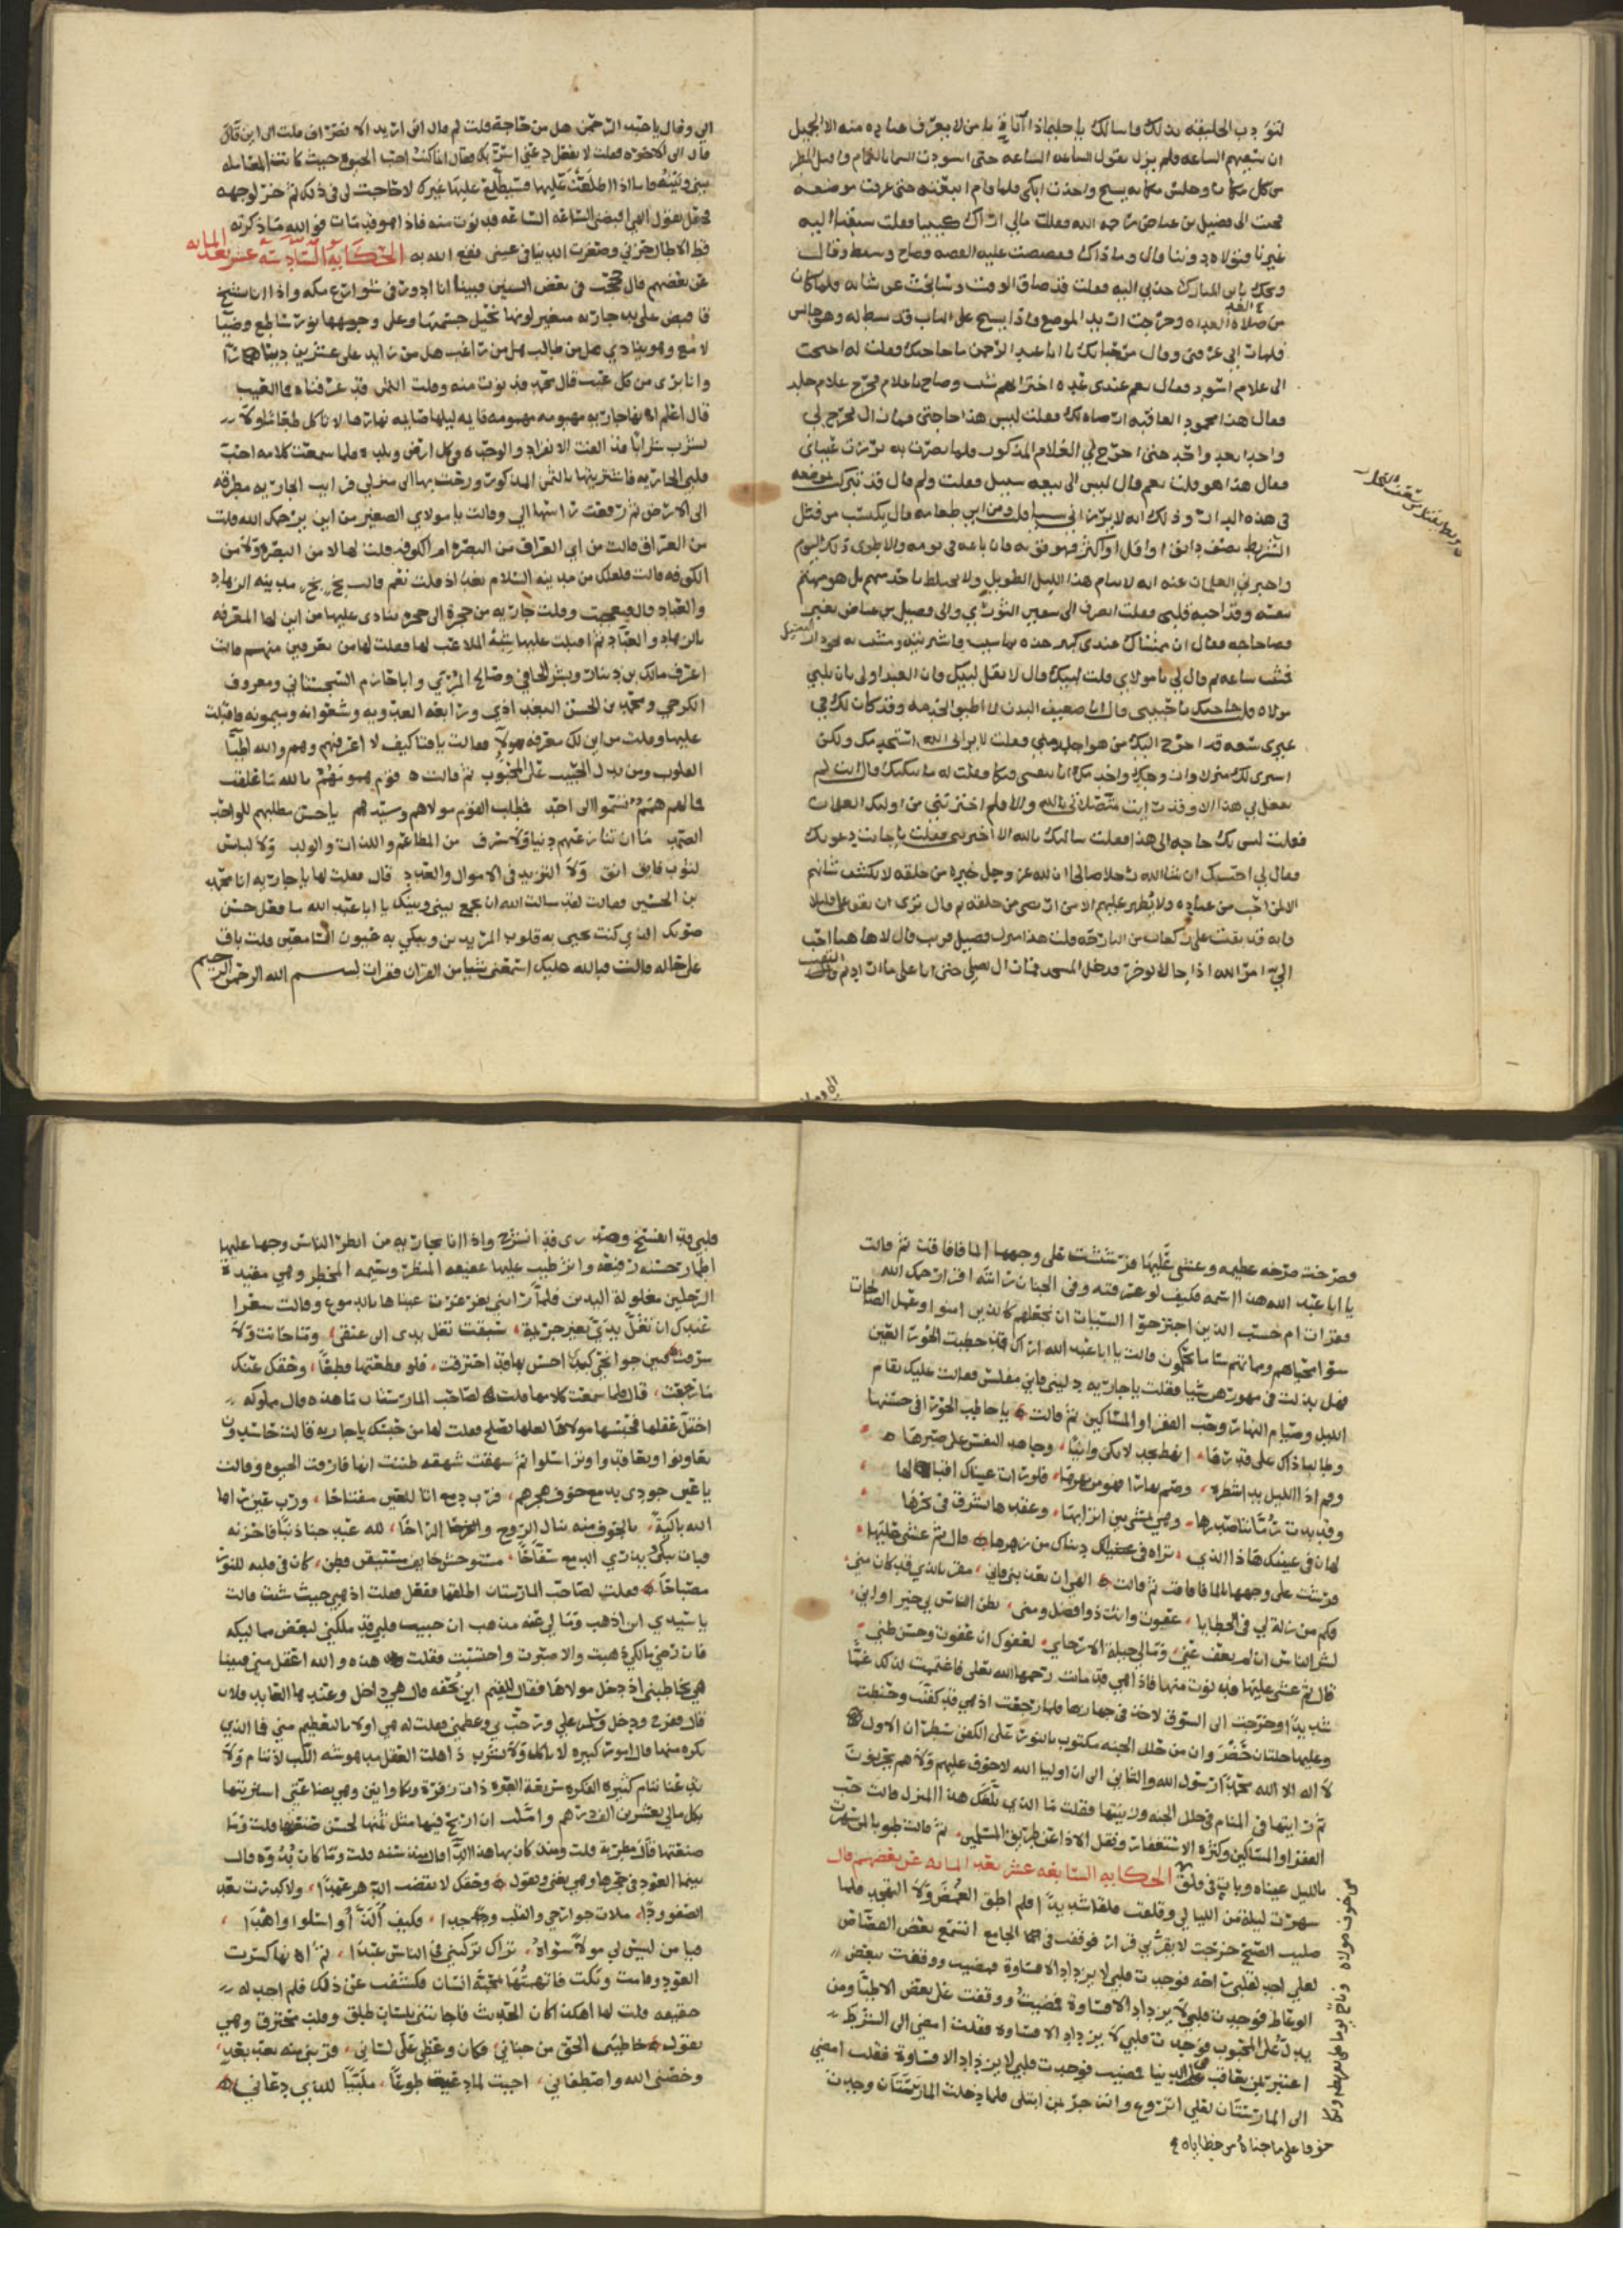 لتؤدب الخليقه بذلك فاسالك يا حليما ذا اناة يا من لا يعرف عباده منه الا الجميل
ان تسقيهم الساعه فلم يزل يقول الساعه الساعه حتى اسودت السما بالغمام واقبل المطر
من كل مكان وجلس مكانه يسبح واخذت ابكي فلما قام اتبعته حتى عرفت موضعه
فجيت الى فضيل بن عياض رحمه الله فقالت مالي اراك كييبا فقلت سبقنا اليه
غيرنا فتولاه دوننا قال وما ذاك فقصصت عليه القصه فصاح وسقط وقال
ويحك يابن المبارك خذني اليه فقلت قد ضاق الوقت وسابحث عن شانه فلما كان
من صلاة الغداه وخرجت اريد الموضع واذا بشيخ على الباب قد بسط له وهو جالس
فلما راني عرفني وقال مرحبا بك يا ابا عبد الرحمن ما حاجتك فقلت له احتجت
الى غلام اسود فقال نعم عندي عده اختر ايهم شيت وصاح يا غلام فخرج غلام جلد
فقال هذا محمود العاقبه ارضاه لك فقلت ليس هذا حاجتي فما زال يخرج لي
واحدا بعد واحد حتى اخرج لي الغلام المذكور فلما بصرت به بدرت عيناي
فقال هذا هو قلت نعم قال ليس الى بيعه سبيل فقلت ولم قال قد تبركت بموضعه
في هذه الدار وذلك انه لا يرزاني شيا قلت ومن اين طعامه قال يكتسب من فتل
الشريط نصف دانق او اقل او اكثر فهو قوته فان باعه في يومه والا طوى ذلك اليوم
واخبرني الغلمان عنه انه لا ينام هذا الليل الطويل ولا يختلط باحد منهم بل هو مهتم
بنفسه وقد احبه قلبي فقلت انصرف الى سفين الثوري والى فضيل بن عياض بغير
قضا حاجه فقال ان ممشاك عندي كبير خذه بما شيت فاشتريته ومشيت به نحو دار الفضيل
فمشيت ساعه ثم قال لي يا مولاي قلت لبيك قال لا تقل لبيك فان العبد اولى بان يلبي
مولاه قلت ما حاجتك يا حبيبي قال انا ضعيف البدن لا اطيق الخدمه وقد كان لك في
غيري سعه قد اخرج اليك من هو اجلد مني فقلت لا يراني الله استخدمك ولكن
اشتري لك منزلا وازوجك واخدمك انا بنفسي فبكا فقلت له ما يبكيك قال انت لم
تفعل بي هذا الا وقد رايت متصلاتي بالله والا فلم اخترتني من اوليك الغلمان
فقلت ليس بك حاجه الى هذا فقلت سالتك بالله الا اخبرتني فقلت باجابت دعوتك
فقال لي احسبك ان شا الله رجلا صالحا ان لله عز وجل خيره من خلقه لا يكشف شانهم
الا لمن احب من عباده ولا يظهر عليهم الا من ارتضى من خلقه ثم قال ترى ان تقف علي قليلا
فانه قد بقيت علي ركعات من البارحه قلت هذا منزل فضيل قريب قال لا هاهنا احب
الي امر الله اذا جا لا يوخر فدخل المسجد فما زال يصلي حتى اتا على ما اراد ثم التفت
الي وقال يا عبد الرحمن هل من حاجة قلت لم قال اني اريد الانصراف قلت الى اين قال
قال الى الاخره فقلت لا تفعل دعني اسر بك فقال انما كنت احب الجميع حيث كانت المعامله
بيني وبينه فاما اذا اطلعت عليها فسيطلع عليها غيرك لا حاجت لي في ذلك ثم خر لوجهه
فجعل يقول الهي اقبضني الساعه الساعه فدنوت منه فاذا هو قد مات فوالله ما ذكرته
قط الا طال حزني وصغرت الدنيا في عيني نفع الله به الحكاية السادسه عشر بعد المايه
عن بعضهم قال حججت في بعض السنين فبينا انا ادور في شوارع مكه واذا انا بشيخ
قابض على يد جاريه متغير لونها نحيل جسمها وعلى وجهها نور ساطع وضيا
لامع وهو ينادي هل من طالب هل من راغب هل من زايد على عشرين دينارا
وانا بري من كل عيب قال محمد فدنوت منه وقلت الثمن قد عرفناه فما العيب
قال اعلم انها جاريه مهمومه قايمه ليلها صايمه نهارها لا تاكل طعاما ولا
تشرب شرابا قد الفت الانفراد والوحده في كل ارض وبلد فلما سمعت كلامه احب
قلبي الجاريه فاشتريتها بالثمن المذكور ورحت بها الى منزلي فرايت الجاريه مطرقه
الى الارض ثم رفعت راسها الي وقالت يا مولاي الصغير من اين يرحمك الله قلت
من العراق قالت من اي العراق من البصره ام الكوفه قلت لها لا من البصره ولا من
الكوفه قالت فلعلك من مدينه السلام بغداد قلت نعم قالت بخ بخ مدينه الزهاد
والعباد قال فعجبت وقلت جاريه من حجرة الى حجره ينادى عليها من اين لها المعرفه
بالزهاد والعباد ثم اقبلت عليها شبه الملاعب لها فقلت لها من تعرفين منهم قالت
اعرف مالك بن دينار وبشر الحافي وصالح المري وابا حازم السجستاني ومعروف
الكرخي ومحمد بن الحسين البغدادي ورابعه العدويه وشعوانه وميمونه فاقبلت
عليها وقلت من اين لك معرفه هولا فقالت يا فتا كيف لا اعرفهم وهم والله اطبا
القلوب ومن يدل الحبيب على المحبوب ثم قالت قوم همومهم بالله قد علقت
فما لهم همم تسموا الى احد فطلب القوم مولاهم وسيدهم يا حسن مطلبهم للواحد
الصمد ما ان تنازعهم دنيا ولا شرف من المطاعم واللذات والولد ولا لباس
لثوب فايق انق ولا التزيد في الاموال والعدد قال فقلت لها يا جاريه انا محمد
بن الحسين فقالت لقد سالت الله ان يجمع بيني وبينك يا ابا عبد الله ما فعل حسن
صوتك الذي كنت تحيي به قلوب المريدين وتبكي به عيون السامعين قلت باق
على حاله قالت فبالله عليك اسمعني شيا من القران فقرات بسم الله الرحمن الرحيم
فصرخت صرخه عظيمه وغشي عليها فرششت على وجهها الما فافاقت ثم قالت
يا ابا عبد الله هذا اسمه فكيف لو عرفته وفي الجنان رايته اقرا رحمك الله
فقرات ام حسب الذين اجترحوا السيات ان نجعلهم كالذين امنوا وعملوا الصالحات
سوا محياهم ومماتهم سا ما يحكمون قالت يا ابا عبد الله اراك قد خطبت الحور العين
فهل بذلت في مهورهن شيا فقلت يا جاريه دليني فاني مفلس فقالت عليك بقيام
الليل وصيام النهار وحب الفقرا والمساكين ثم قالت يا خاطب الحورا في حسنها
وطالبا ذاك على قدرها انهض بجد لا تكن وانيا وجاهد النفس على صبرها
وقم اذا الليل بدا شطره وصم نهارا فهو من مهرها فلو رات عيناك اقبالها
وقد بدت رمانتا صدرها وهي تمشي بين اترابها وعقدها يشرق في نحرها
لهان في عينك هذا الذي تراه في دنياك من زهرها قال ثم غشي عليها
فرششت على وجهها الما فافاقت ثم قالت الهي ان تعذبني فاني مقر بالذي قد كان مني
فكم من زلة لي في الخطايا عفوت وانت ذو فضل ومني يظن الناس بي خيرا واني
لشر الناس ان لم تعف عني وما لي حيلة الا رجاي لعفوك ان عفوت وحسن ظني
قال ثم غشي عليها فدنوت منها فاذا هي قد ماتت رحمها الله تعلى فاغتميت لذلك غما
شديدا وخرجت الى السوق لاخذ في جهازها فلما رجعت اذ هي قد كفنت وحنطت
وعليها حلتان خضر وان من حلل الجنه مكتوب بالنور على الكفن سطران الاول
لا اله الا الله محمد رسول الله والثاني الا ان اوليا الله لا خوف عليهم ولا هم يحزنون
ثم رايتها في المنام في حلل الجنه وزينتها فقلت ما الذي بلغك هذا المنزل قالت حب
الفقرا والمساكين وكثره الاستغفار ونقل الاذا عن طريق المسلمين ثم قالت طوبا لمن سهرت
بالليل عيناه وبات في قلق الحكايه السابعه عشر بعد المايه عن بعضهم قال
سهرت ليلة من الليالي وقلقت قلقا شديدا فلم اطق الغمض ولا التهجد فلما
صليت الصبح خرجت لا يقر بي قرار فوقفت في الجامع استمع بعض القصاص
لعلي اجد لقلبي راحه فوجدت قلبي لا يزداد الا قساوة فمضيت ووقفت ببعض
الوعاظ فوجدت قلبي لا يزداد الا قساوة فمضيت ووقفت على بعض الاطبا ومن
يدل على المحبوب فوجدت قلبي لا يزداد الا قساوة فقلت امضي الى الشريط
اعتبر بمن يعاقب في الدنيا فمضيت فوجدت قلبي لا يزداد الا قساوة فقلت امضي
الى المارستان لعلي اتروع وانزجر بمن ابتلى فلما دخلت المارستان وجدت
خوفا على ما جناه من خطاياه
قلبي قد انفسح وصدري قد انشرح واذا انا بجاريه من انظر الناس وجها عليها
اطمار حسنه رفيعه واثر طيب عليها عفيفه المنظر وسيمه المخطر وهي مقيده
الرجلين مغلولة اليدين فلما راتني تغرغرت عيناها بالدموع وقالت شعرا
عندك ان تغل يدي بغير جريمة سبقت تغل يدي الى عنقي وما خانت ولا
سرقت وبين جوانحي كبد احس بها قد احترقت فلو قطعتها قطعا وحقك عنك
ما رجعت قال فلما سمعت كلامها قلت لصاحب المارستان ما هذه قال مملوكه
اختل عقلها فحبسها مولاها لعلها تصلح فقلت لها من حبسك يا جاريه قالت حاسدون
تعاونوا وتعاقدوا وتراسلوا ثم شهقت شهقه ظننت انها فارقت الحيوه وقالت
يا عين جودي بدمع خوف هجرهم فرب دمع اتا للعين مفتاحا ورب عين راها
الله باكية بالخوف منه تنال الروح والراحا لله عبد جنا ذنبا فاحزنه
فبات يبكي ويذري الدمع سفاحا مستوحش خايف مستيقن فطن كان في قلبه للنور
مصباحا فقلت لصاحب المارستان اطلقها ففعل فقلت اذهبي حيث شيت قالت
يا سيدي اين اذهب وما لي عنه مذهب ان حبيب قلبي قد ملكني لبعض مماليكه
فان رضي مالكي ذهبت والا صبرت واحتسبت فقلت هذه والله اعقل مني فبينا
هي تخاطبني اذ دخل مولاها فقال للقيم اين تحفه قال هي داخل وعندها العابد فلان
قال ففرح ودخل وسلم علي ورحب بي وعظمني فقلت له هي اولا بالتعظيم مني فما الذي
تكره منها قال امور كثيره لا تاكل ولا تشرب ذاهلت العقل مدهوشه اللب لا تنام ولا
تدعنا ننام كثيره الفكره سريعة العبره ذات زفرة وبكا وانين وهي بضاعتي اشتريتها
بكل مالي بعشرين الف درهم واملت ان اربح فيها مثل ثمنها لحسن صنعتها قلت وما
صنعتها قال مطربة قلت ومنذ كان بها هذا الدا قال منذ سنه قلت وما كان بدوه قال
بينما العود في حجرها وهي تغني وتقول وحقك لا نقضت الدهر عهدا ولا كدرت بعد
الصفو ودا ملات جوارحي والقلب وجدا فكيف الذ او اسلوا واهدا
فيا من ليس لي مولا سواه تراك تركتني في الناس عبدا ثم انها كسرت
العود وقامت وبكت فاتهمتها بمحبة انسان فكشفت عن ذلك فلم اجد له
حقيقه قلت لها اهكذا كان الحديث فاجابتني بلسان طلق وقلب محترق وهي
تقول خاطبني الحق من جناني فكان وعظي على لساني قربني منه بعد بعد
وخصني الله واصطفاني اجبت لما دعيت طوعا ملبيا للذي دعاني